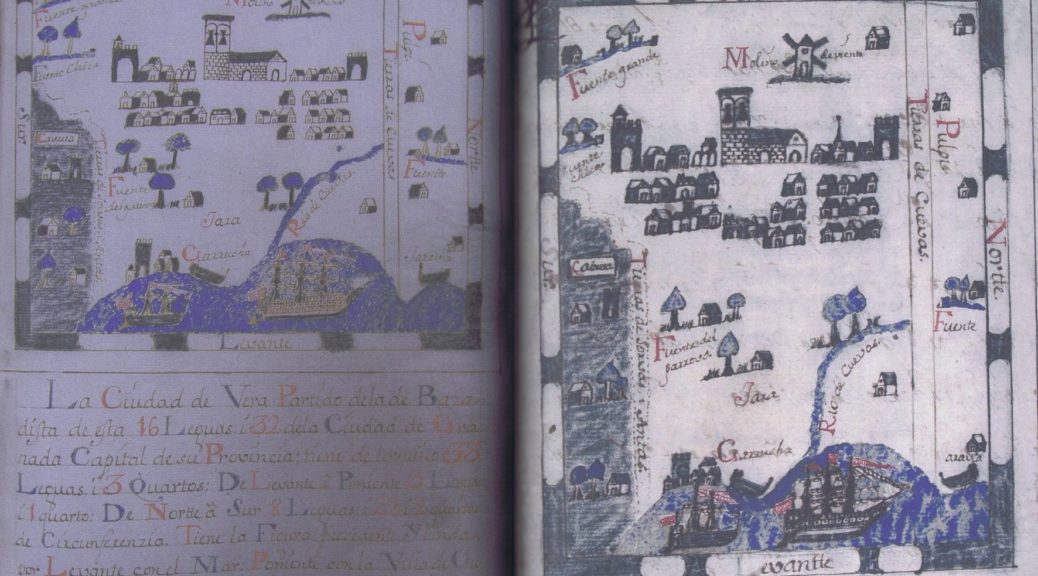 Fuente grande
Molino
Fuente Chica
Pulpi
Tierras de Cuevas
Sur
Nortte
Cabrera
Fuente
Fuente
del garrovo
Rio de Cuevas
Jara
Garrucha
Jaravia
Levante
La Ciudad de Vera Partido de la de Baza
dista de esta 16 Leguas i 32 de la Ciudad de Gra
nada Capital de su Provincia: tiene de termino 33
Leguas i 3 Quartos: De Levante â Poniente
i 1 quarto: De Nortte â Sur 8 Leguas:
de Circunferenzia. Tiene la Figura precedente
por Levante con el Mar: Poniente con la Villa de
Fuente grande
Molino de viento
Fuente
Pulpi
Tierras de Cuevas.
Nortte
Sur
Cabrera
Tierras de Sorvas i Antas.
Fuente del
garrovo.
Fuente
Rio de Cuevas.
Jara
Garrucha
Jaravia
Levantte